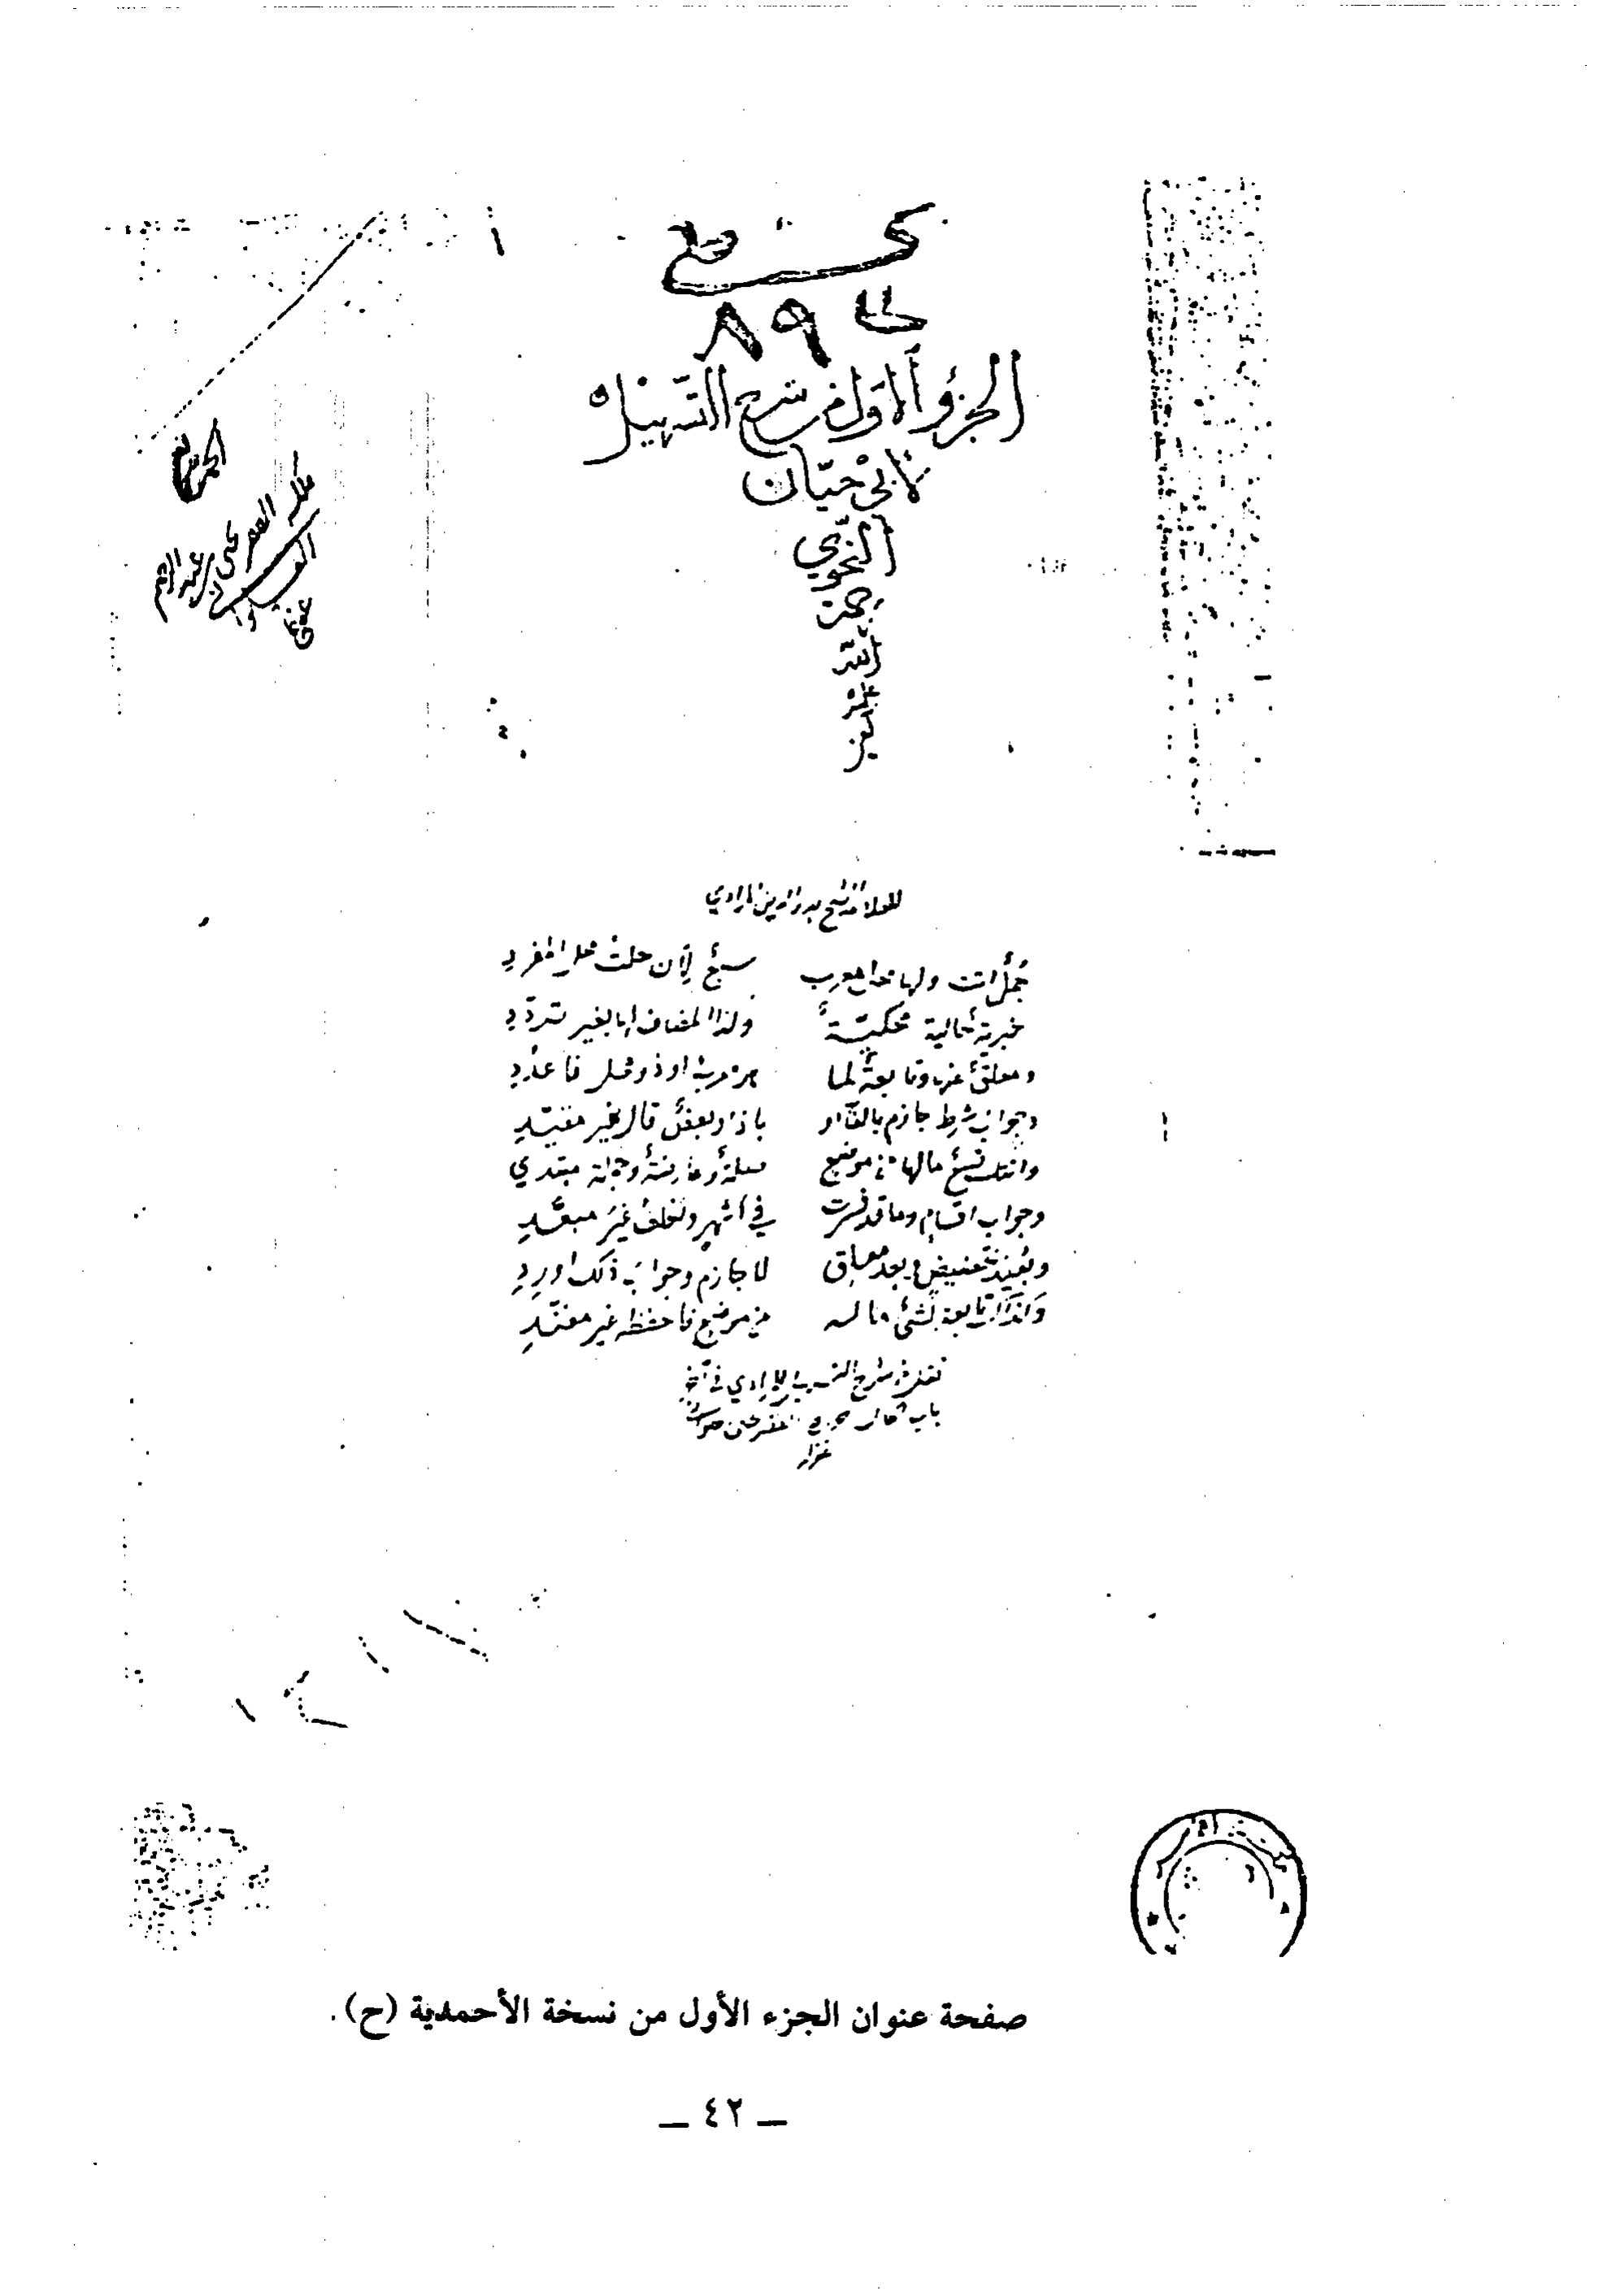 ٨٩
الجزؤ الاول من شرح التسهيل
لأبي حيان
النحوي
رحمة
الله
عليه
الحمد لله
ملكه الفقير
عفي
للعلامة الشيخ بدر الدين المرادي
جمل أتت ولها مواضع معرب سبع لأن حلت محل المفرد
خبرية حالية محكية وكذا المضاف لها بغير تردد
ومعلق عنها وتابعة لما هو معرب او ذو محل فاعدد
وجواب شرط جازم بالفاء او باذا وبعض قال غير مقيد
واتتك سبع مالها من موضع صلة وعارضة وجملة مبتدي
وجواب اقسام وما قد فسرت في أشهر والخلف غير مبعد
وبعيد تحضيض وبعد معلق لا جازم وجواب ذلك اورد
وكذاك تابعة لشئ ما له من موضع فاحفظه غير مفند
باب
صفحة عنوان الجزء الأول من نسخة الأحمدية (ح).
ــ ٤٢ ــ